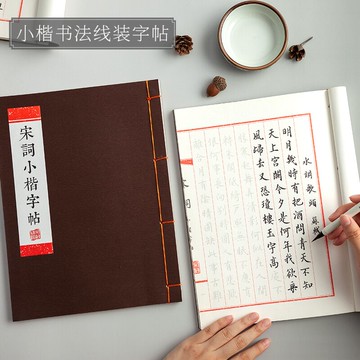 小楷书法线装字帖
宋詞小楷字帖
水調歌頭 蘇軾
明月幾時有把酒問青天不知
天上宮闕今夕是何年我欲乘
風歸去又恐瓊樓玉宇高